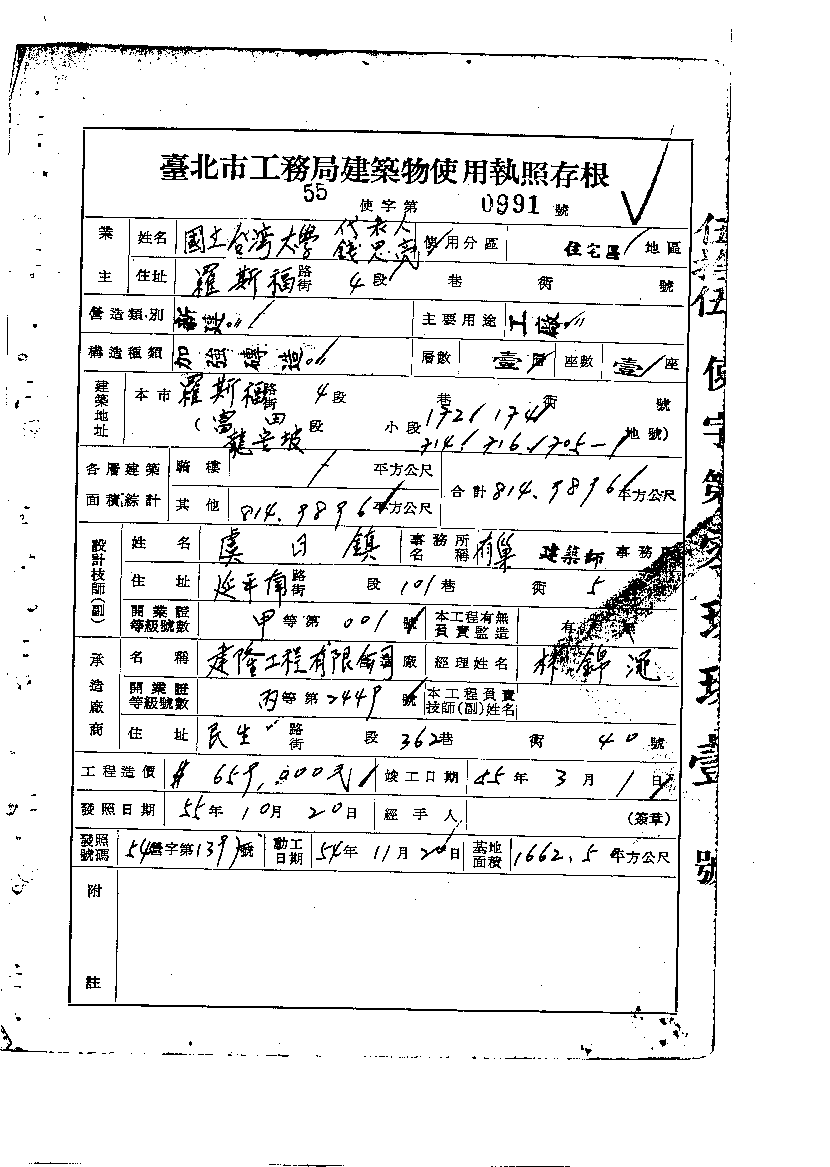 臺北市工務局建築物使用執照存根
55 使字第 0991 號
業主 姓名 國立台灣大學 代表人 錢思亮 使用分區 住宅區 地區
住址 羅斯福 路街 4 段 巷 衖 號
營造類別 新建 主要用途 工廠
構造種類 加強磚造 層數 壹 層 座數 壹 座
建築地址 本市 羅斯福 路街 4 段 巷 衖 號
(富田 龍安坡 段 小段 172 174 714 716 705-1 地號)
各層建築面積綜計 騎樓 / 平方公尺 合計 814.9896 平方公尺
其他 814.9896 平方公尺
設計技師(副) 姓名 虞日鎮 事務所名稱 有巢 建築師 事務
住址 延平南 路街 段 101 巷 衖 5
開業證等級號數 甲 等第 001 號 本工程有無負責監造 有
承造廠商 名稱 建隆工程有限公司 廠 經理姓名 林錦
開業證等級號數 丙 等第 2449 號 本工程負責技師(副)姓名
住址 民生 路街 段 362 巷 衖 40 號
工程造價 659,000元 竣工日期 55 年 3 月 1 日
發照日期 55 年 10 月 20 日 經手人 (簽章)
發照號碼 54 營字第 139 號 動工日期 54 年 11 月 20 日 基地面積 1662.5 平方公尺
附註
伍伍 使字第 玖玖壹 號